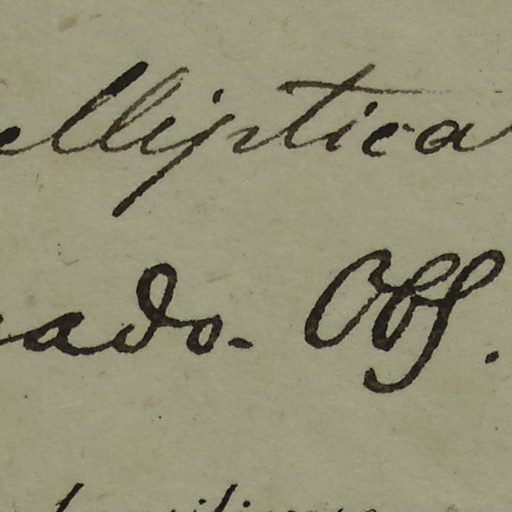 elliptica
ado- Obs.